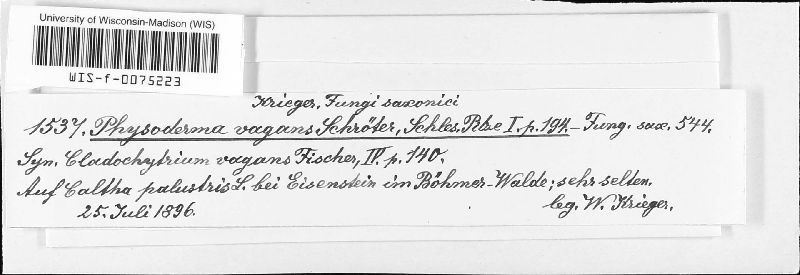 University of Wisconsin-Madison (WIS)
WIS-f-0075223
Krieger, Fungi saxonici
1537. Physoderma vagans Schröter, Schles. Pilze I. p. 194. – Fung. sax. 544.
Syn. Cladochytrium vagans Fischer, IV. p. 140.
Auf Caltha palustris L. bei Eisenstein im Böhmer-Walde; sehr selten.
25. Juli 1896. leg. W. Krieger.